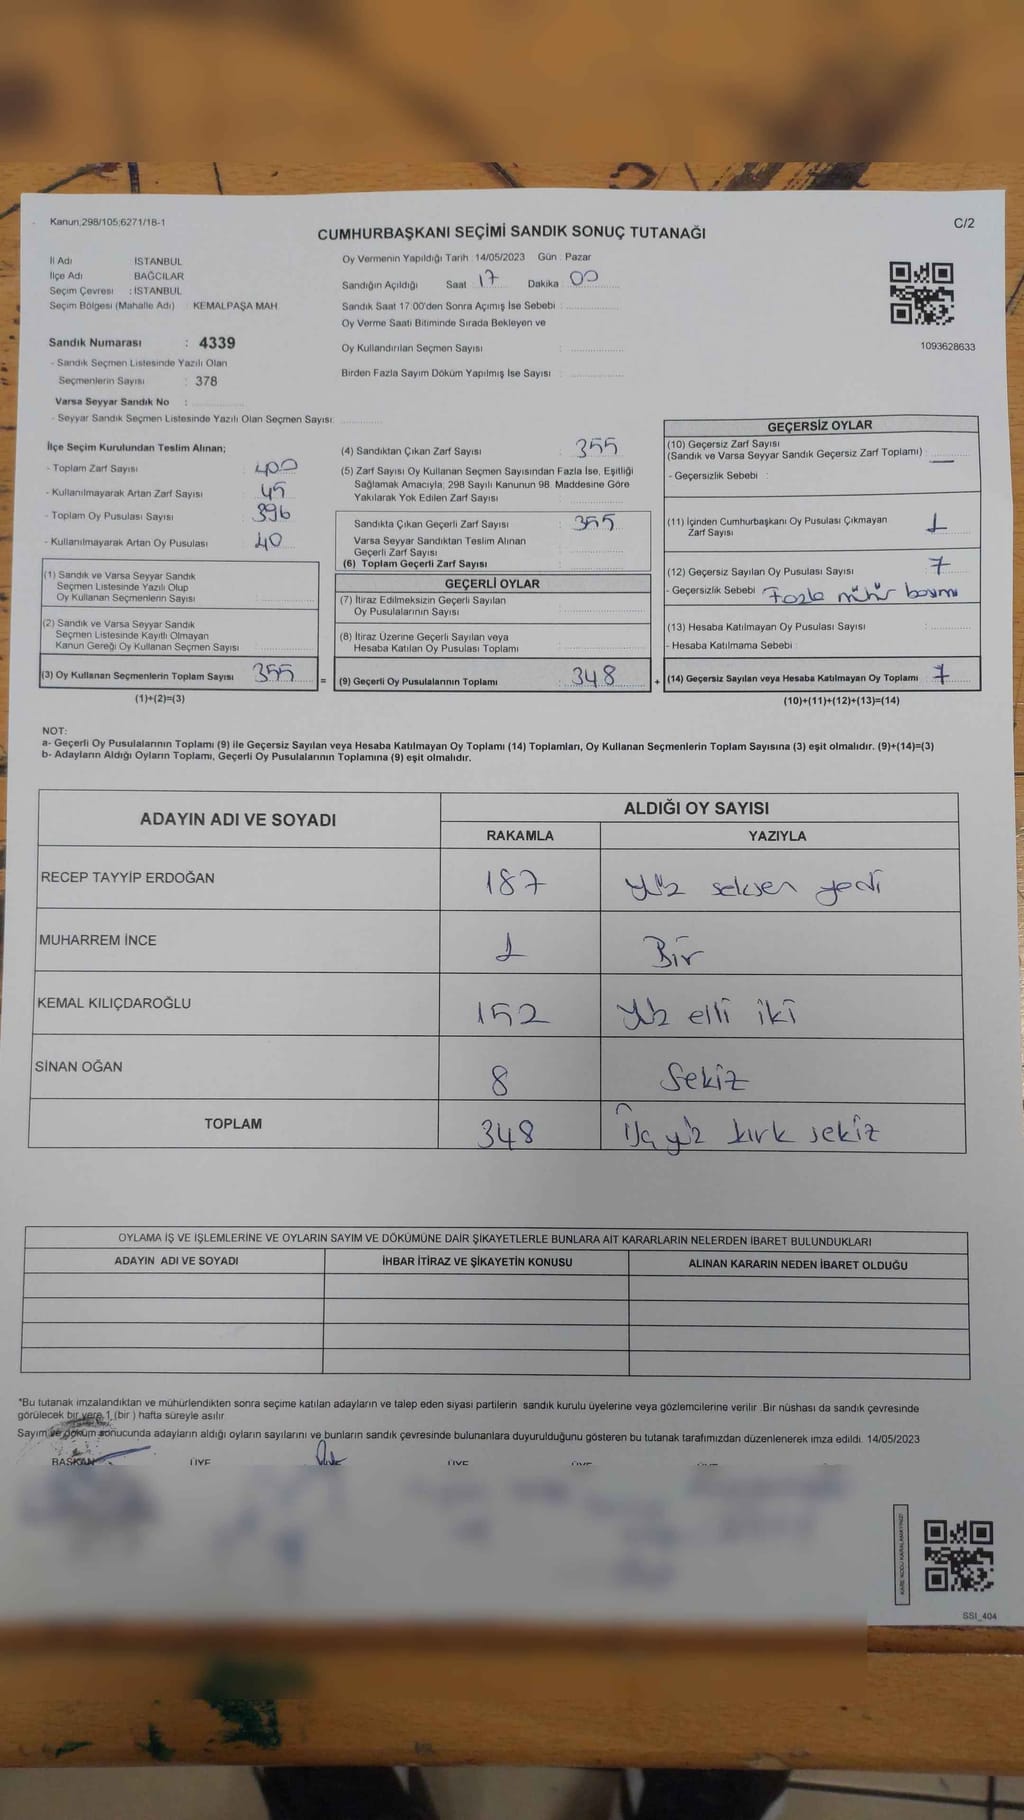 Kanun;298/105;6271/18-1
C/2
CUMHURBAŞKANI SEÇİMİ SANDIK SONUÇ TUTANAĞI
İl Adı İSTANBUL
İlçe Adı BAĞCILAR
Seçim Çevresi : İSTANBUL
Seçim Bölgesi (Mahalle Adı) : KEMALPAŞA MAH
Oy Vermenin Yapıldığı Tarih : 14/05/2023 Gün : Pazar
Sandığın Açıldığı Saat 17 Dakika 00
Sandık Saat 17:00'den Sonra Açımış İse Sebebi :
Oy Verme Saati Bitiminde Sırada Bekleyen ve
Oy Kullandırılan Seçmen Sayısı :
Birden Fazla Sayım Döküm Yapılmış İse Sayısı :
1093628633
Sandık Numarası : 4339
- Sandık Seçmen Listesinde Yazılı Olan
Seçmenlerin Sayısı : 378
Varsa Seyyar Sandık No :
- Seyyar Sandık Seçmen Listesinde Yazılı Olan Seçmen Sayısı:
İlçe Seçim Kurulundan Teslim Alınan;
- Toplam Zarf Sayısı : 400
- Kullanılmayarak Artan Zarf Sayısı : 45
- Toplam Oy Pusulası Sayısı : 396
- Kullanılmayarak Artan Oy Pusulası : 40
(1) Sandık ve Varsa Seyyar Sandık
Seçmen Listesinde Yazılı Olup
Oy Kullanan Seçmenlerin Sayısı :
(2) Sandık ve Varsa Seyyar Sandık
Seçmen Listesinde Kayıtlı Olmayan
Kanun Gereği Oy Kullanan Seçmen Sayısı :
(3) Oy Kullanan Seçmenlerin Toplam Sayısı : 355 =
(1)+(2)=(3)
(4) Sandıktan Çıkan Zarf Sayısı : 355
(5) Zarf Sayısı Oy Kullanan Seçmen Sayısından Fazla İse, Eşitliği
Sağlamak Amacıyla; 298 Sayılı Kanunun 98. Maddesine Göre
Yakılarak Yok Edilen Zarf Sayısı :
Sandıkta Çıkan Geçerli Zarf Sayısı : 355
Varsa Seyyar Sandıktan Teslim Alınan
Geçerli Zarf Sayısı :
(6) Toplam Geçerli Zarf Sayısı :
GEÇERLİ OYLAR
(7) İtiraz Edilmeksizin Geçerli Sayılan
Oy Pusulalarının Sayısı :
(8) İtiraz Üzerine Geçerli Sayılan veya
Hesaba Katılan Oy Pusulası Toplamı :
(9) Geçerli Oy Pusulalarının Toplamı : 348 +
GEÇERSİZ OYLAR
(10) Geçersiz Zarf Sayısı
(Sandık ve Varsa Seyyar Sandık Geçersiz Zarf Toplamı) : —
- Geçersizlik Sebebi :
(11) İçinden Cumhurbaşkanı Oy Pusulası Çıkmayan
Zarf Sayısı : 1
(12) Geçersiz Sayılan Oy Pusulası Sayısı : 7
- Geçersizlik Sebebi Fazla mühür basımı
(13) Hesaba Katılmayan Oy Pusulası Sayısı :
- Hesaba Katılmama Sebebi :
(14) Geçersiz Sayılan veya Hesaba Katılmayan Oy Toplamı : 7
(10)+(11)+(12)+(13)=(14)
NOT:
a- Geçerli Oy Pusulalarının Toplamı (9) ile Geçersiz Sayılan veya Hesaba Katılmayan Oy Toplamı (14) Toplamları, Oy Kullanan Seçmenlerin Toplam Sayısına (3) eşit olmalıdır. (9)+(14)=(3)
b- Adayların Aldığı Oyların Toplamı, Geçerli Oy Pusulalarının Toplamına (9) eşit olmalıdır.
ADAYIN ADI VE SOYADI ALDIĞI OY SAYISI
RAKAMLA YAZIYLA
RECEP TAYYİP ERDOĞAN 187 Yüz seksen yedi
MUHARREM İNCE 1 Bir
KEMAL KILIÇDAROĞLU 152 Yüz elli iki
SİNAN OĞAN 8 Sekiz
TOPLAM 348 Üç yüz kırk sekiz
OYLAMA İŞ VE İŞLEMLERİNE VE OYLARIN SAYIM VE DÖKÜMÜNE DAİR ŞİKAYETLERLE BUNLARA AİT KARARLARIN NELERDEN İBARET BULUNDUKLARI
ADAYIN ADI VE SOYADI İHBAR İTİRAZ VE ŞİKAYETİN KONUSU ALINAN KARARIN NEDEN İBARET OLDUĞU
*Bu tutanak imzalandıktan ve mühürlendikten sonra seçime katılan adayların ve talep eden siyasi partilerin sandık kurulu üyelerine veya gözlemcilerine verilir .Bir nüshası da sandık çevresinde
görülecek bir yere 1 (bir ) hafta süreyle asılır
Sayım ve döküm sonucunda adayların aldığı oyların sayılarını ve bunların sandık çevresinde bulunanlara duyurulduğunu gösteren bu tutanak tarafımızdan düzenlenerek imza edildi. 14/05/2023
BAŞKAN ÜYE ÜYE ÜYE ÜYE
SSI_404